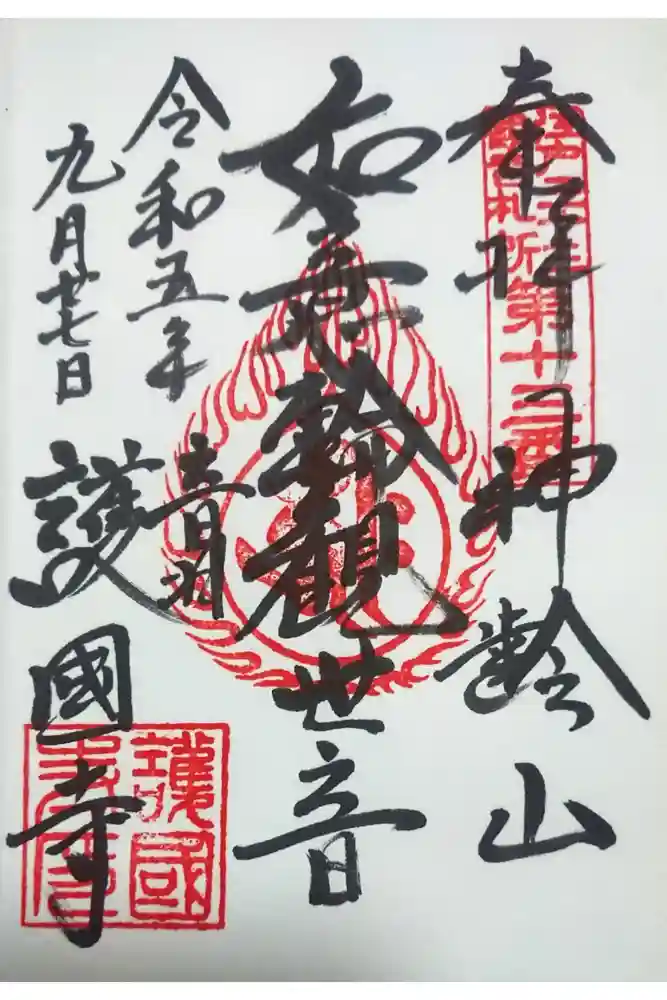 奉拝
神齡山
札所第十三番
如意輪観世音
令和五年
九月廿七日
音羽
護國寺
護國